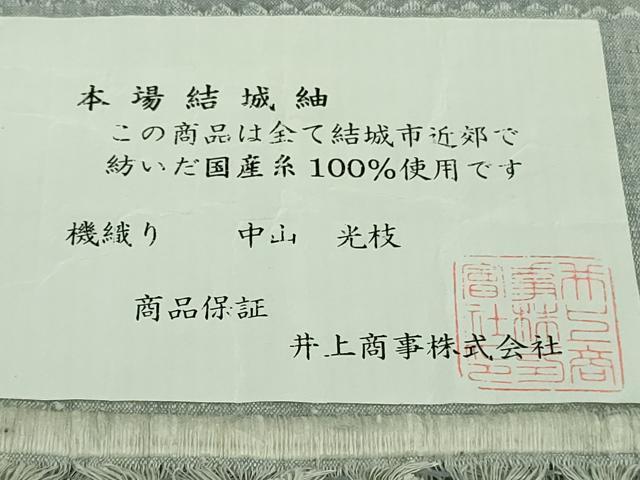 本場結城紬
この商品は全て結城市近郊で
紡いだ国産糸100%使用です
機織り 中山 光枝
商品保証
井上商事株式会社